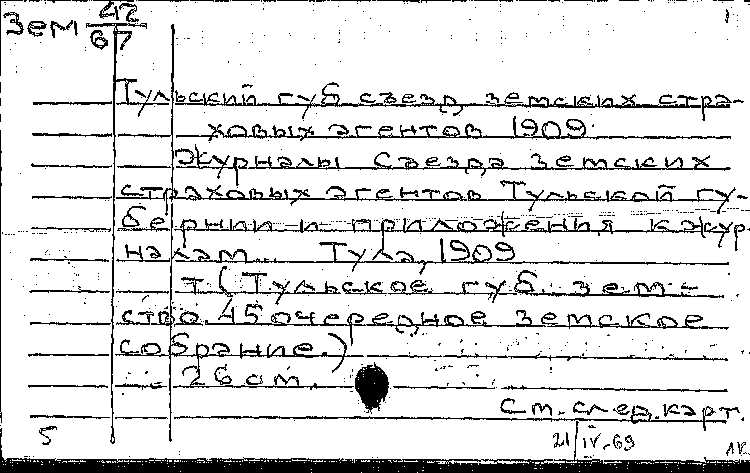 Зем 42
67
1
Тульский губ съезд земских стра-
ховых агентов 1909.
Журналы Съезда земских
страховых агентов Тульской гу-
бернии и приложения к жур
налам... Тула, 1909
т (Тульское губ. зем-
ство. 45 очередное земское
собрание.)
26 cm.
См. след. карт.
5
21/IV-69